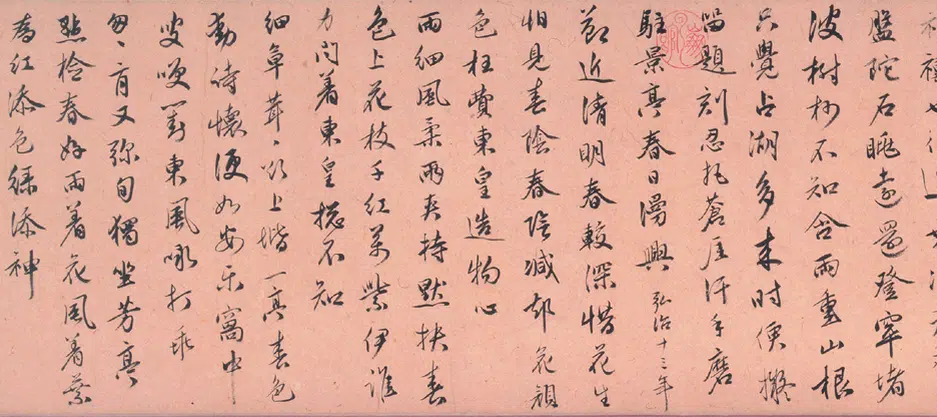 盤陀石眺遠還登窣堵
波樹杪不知含雨重山根
只覺占湖多來時便擬
留題刻忍扥蒼崖汙手磨
駐景亭春日漫興 弘治十三年
節近清明春較深惜花生
怕見春陰春陰減却花顏
色枉費東皇造物心
雨細風柔兩夾持默扶春
色上花枝千紅萬紫伊誰
力問着東皇總不知
細草茸〻欲上堦一亭春色
動詩懷便如安樂窩中
叟對東風咏打乖
匆〻又弥旬獨坐芳亭
點檢春好雨着花風着葉
為紅添色綠添神